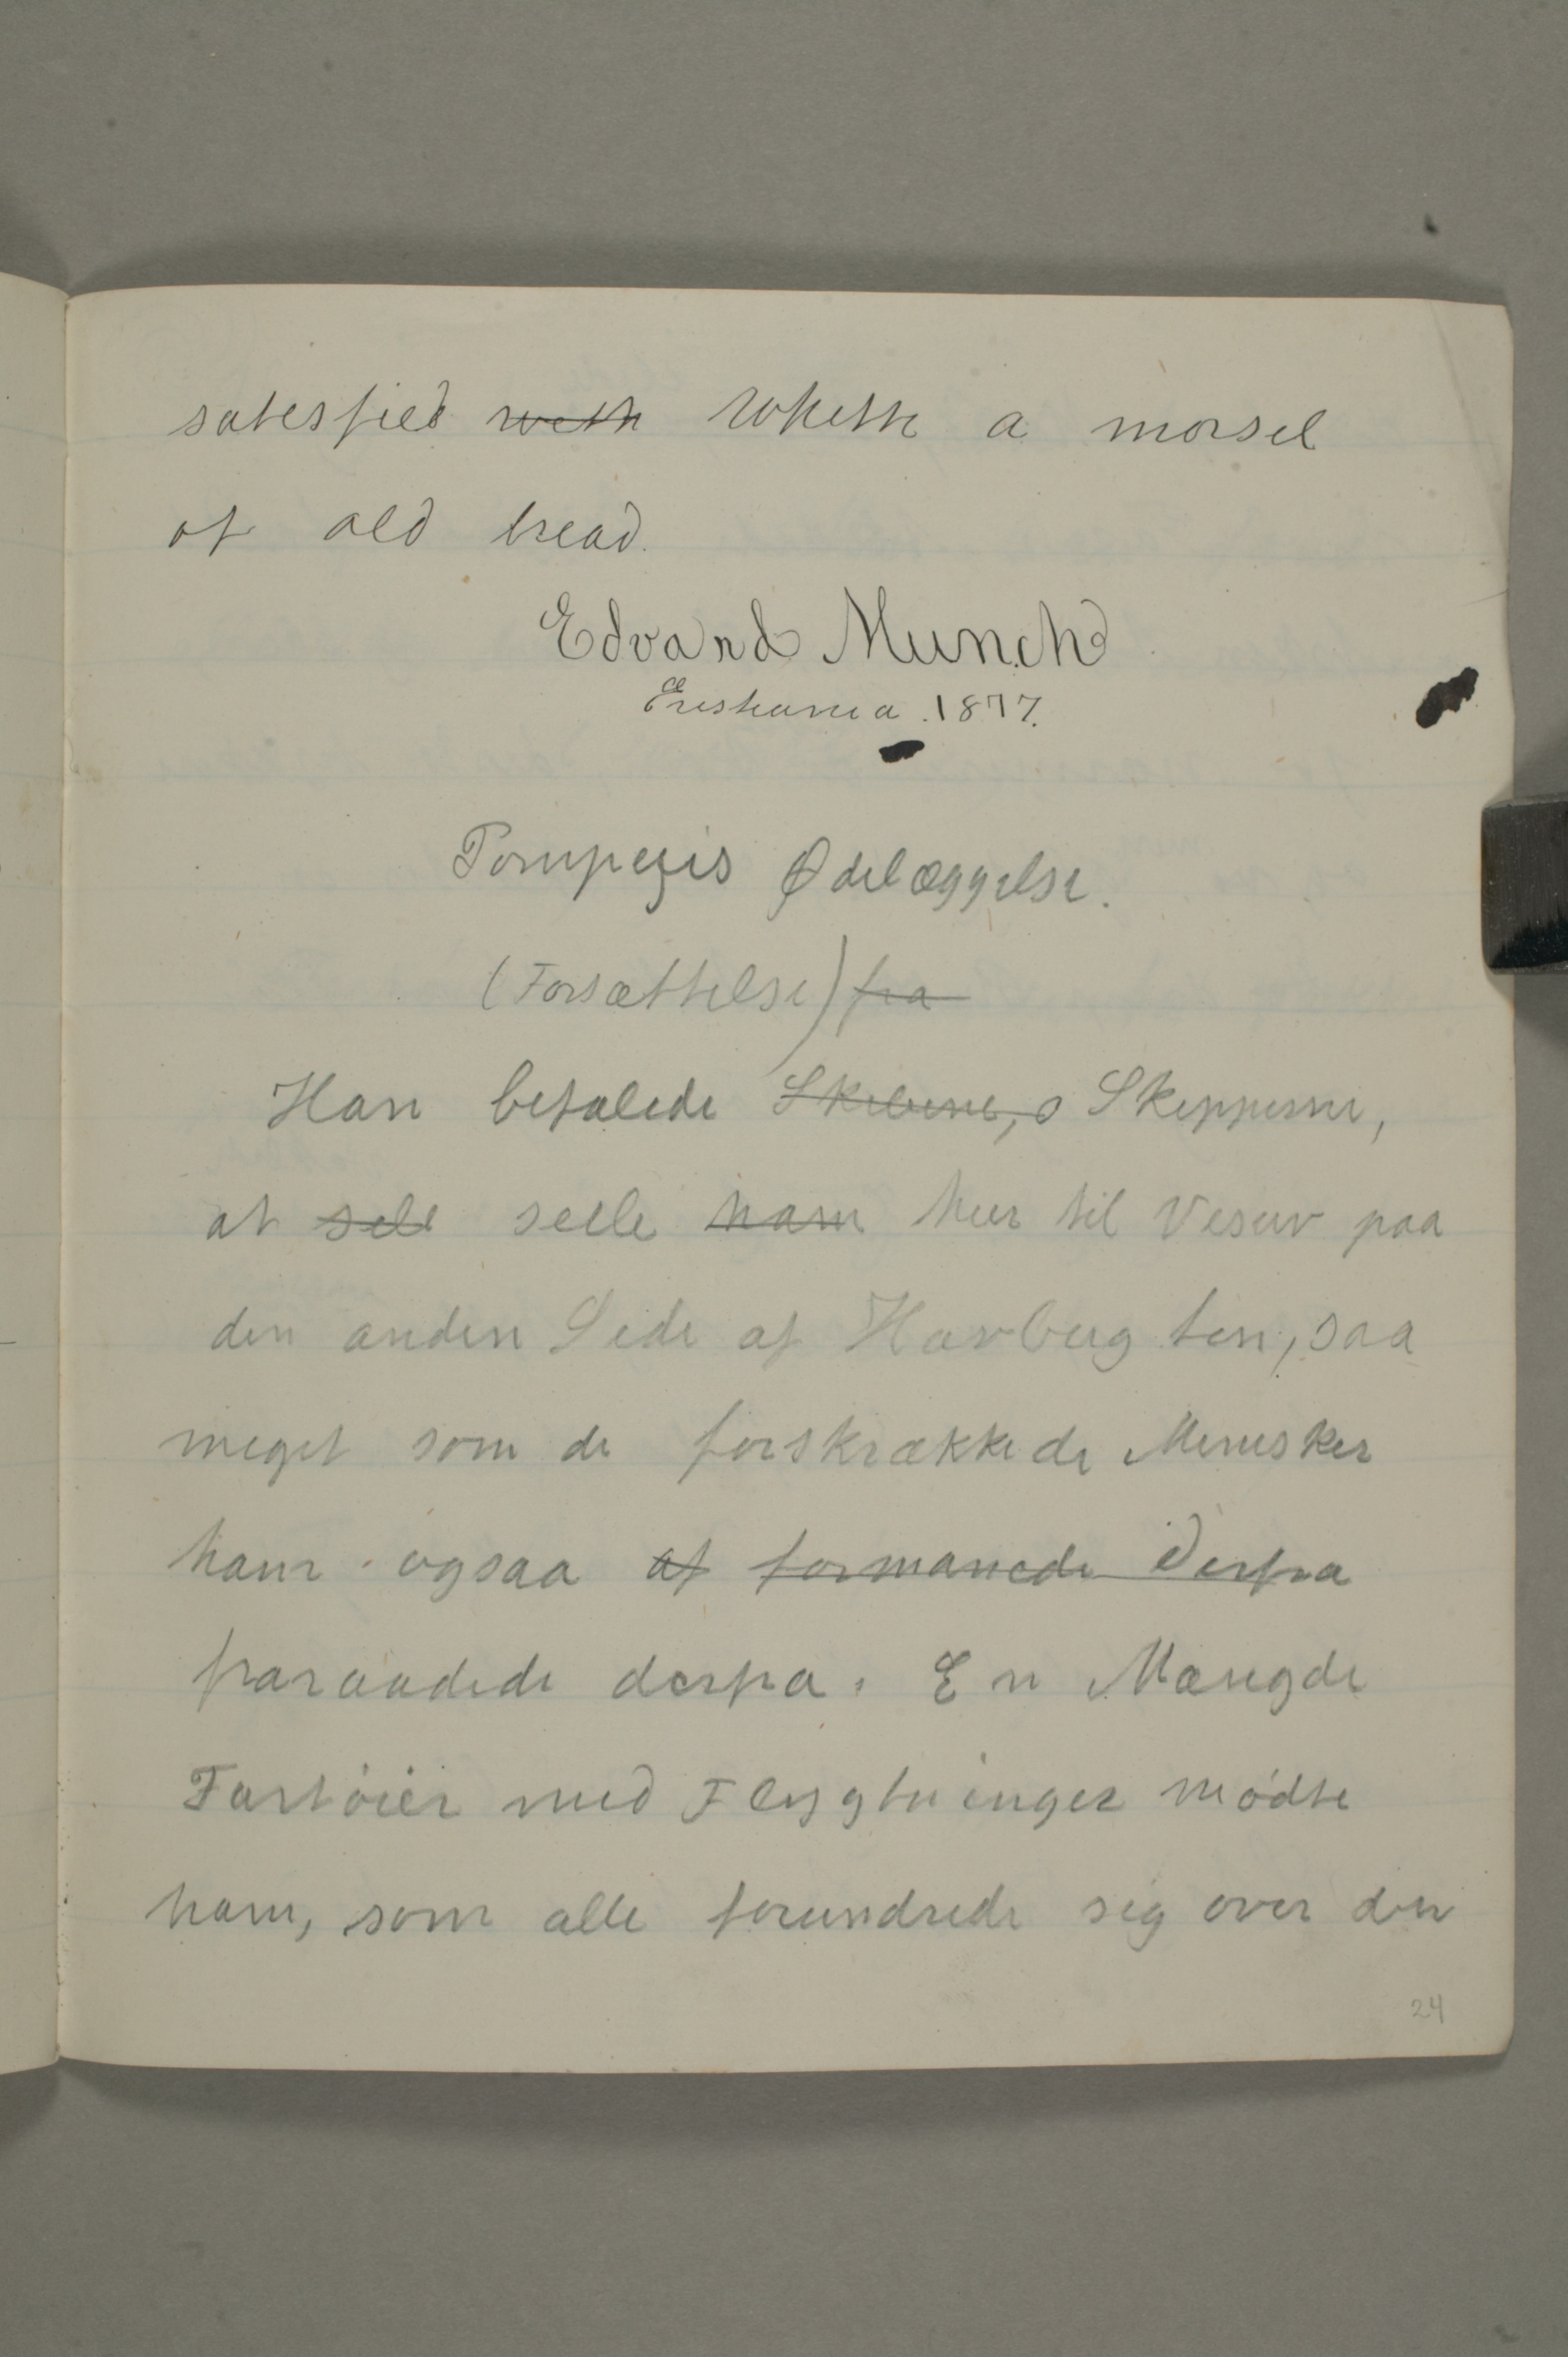 satisfied with whith a morsel
of old bread.
Edvard Munch
Cristiania. 1877.
Pompejis Ødelæggelse.
(Forsættelse) fra
Han befalede Skibene, Skipperne,
at seil seile ham hen til Vesuv paa
den anden Side af Havbugten, saa
meget som de forskrækkede Menesker
ham ogsaa af formanede derfra
fraraadede derfra. En Mængde
Fartöier med Flygtninger mödte
ham, som alle forundrede sig over den
24